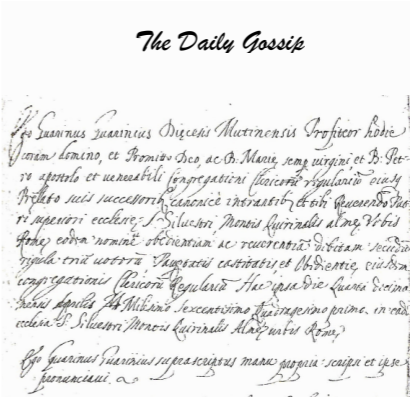 The Daily Gossip
Ego Guarinus Guarinius Diœcesis Mutinensis Profiteor hodie
coram domino, et Promitto Deo, ac B. Mariæ semp virgini et B. Pet-
ro apostolo et venerabili congregationi Clericorū regulariū eiusq
Prelato suis successoribꝰ canonicè intrantibꝰ et tibi Reverendo Pat-
ri superiori ecclesiæ S. Silvestri Montis Quirinalis almæ Urbis
Romæ eodem nomine obedientiam ac reverentiā debitam secundū
regulā triū votorū Paupertatis castitatis et Obidientiæ, eiusdem
congregationis Clericorū Regularium Hac ipsa die Quarta decima
mensis Aprilis Millesimo sexcentisimo Quadragesimo primo. in eadē
ecclesia S. Silvestri Montis Quirinalis Almæ urbis Romæ,
Ego Guarinus Guarinius suprascriptus manu propria scripsi et ipse
pronunciavi.